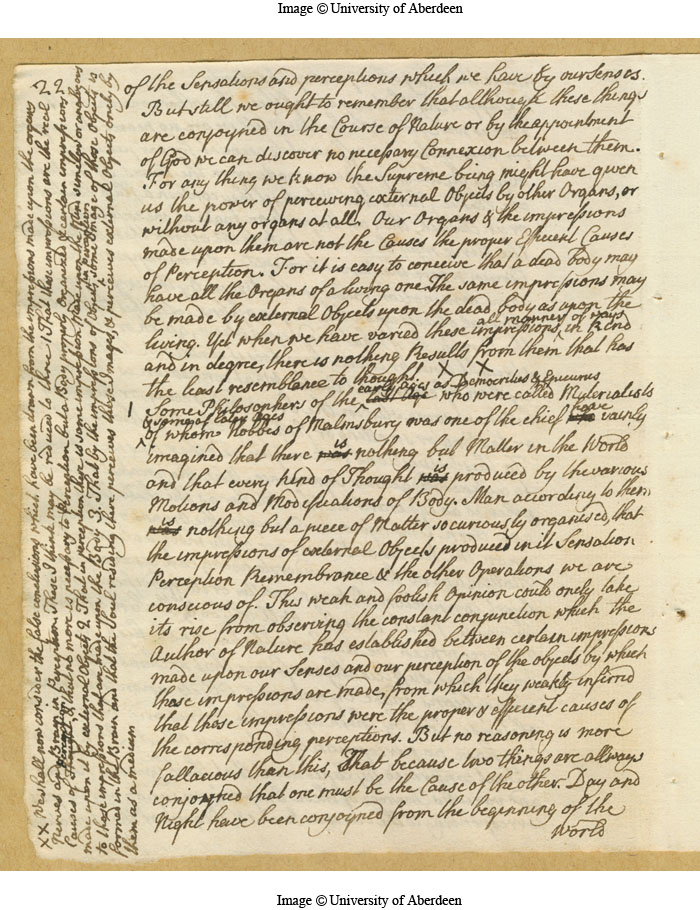 Image © University of Aberdeen
22
of the Sensations and perceptions which we have by our senses.
But still we ought to remember that although these things
are conjoyned in the Course of Nature or by the appointment
of God we can discover no necessary Connexion between them.
For any thing we know the Supreme being might have given
us the power of perceiving external Objects by other Organs, or
without any organs at all. Our Organs & the impressions
made upon them are not the Causes the proper Efficient Causes
of Perception. For it is easy to conceive that a dead body may
have all the Organs of a living one The same impressions may
be made by external Objects upon the dead body as upon the
living. Yet when we have varied these impressions all manner of ways in Kind
and in degree, there is nothing Results from them that has
the least resemblance to thought. X X
Some Philosophers of the early ages as Democritus & Epicurus last Age who were called Materialists
& some of later Ages
of whom Hobbes of Malmsbury was one of the chief have vainly
imagined that there is was nothing but Matter in the World
and that every kind of Thought is was produced by the various
Motions and Modifications of Body. Man according to them
is was nothing but a piece of Matter so curiously organised, that
the impressions of external Objects produced in it Sensation
Perception Remembrance & the other Operations we are
conscious of. This weak and foolish Opinion could onely take
its rise from observing the constant conjunction which the
Author of Nature has established between certain impressions
made upon our Senses and our perception of the objects by which
those impressions are made, from which they weakly inferrd
that those impressions were the proper & efficient causes of
the corresponding perceptions. But no reasoning is more
fallacious than this, That because two things are allways
conjoyned that one must be the Cause of the other. Day and
Night have been conjoyned from the beginning of the
World
XX We shall now consider the false conclusions which have been drawn from the impressions made upon the organs
Nerves and Brain in Perception. These I think may be reduced to three 1 That these impressions are the real
Causes of & that no more is necessary to Perception but a Body properly Organized & certain impressions
made upon it by external Objects 2 That in perception there is some impression made upon the Mind similar or analogous
to those impressions that are made upon the Body 3 That by the impressions of Objects in perception some Image of those Objects is
formed in the Brain and that the Soul residing there perceives these Images, & perceives external Objects onely by
them as a medium
Image © University of Aberdeen